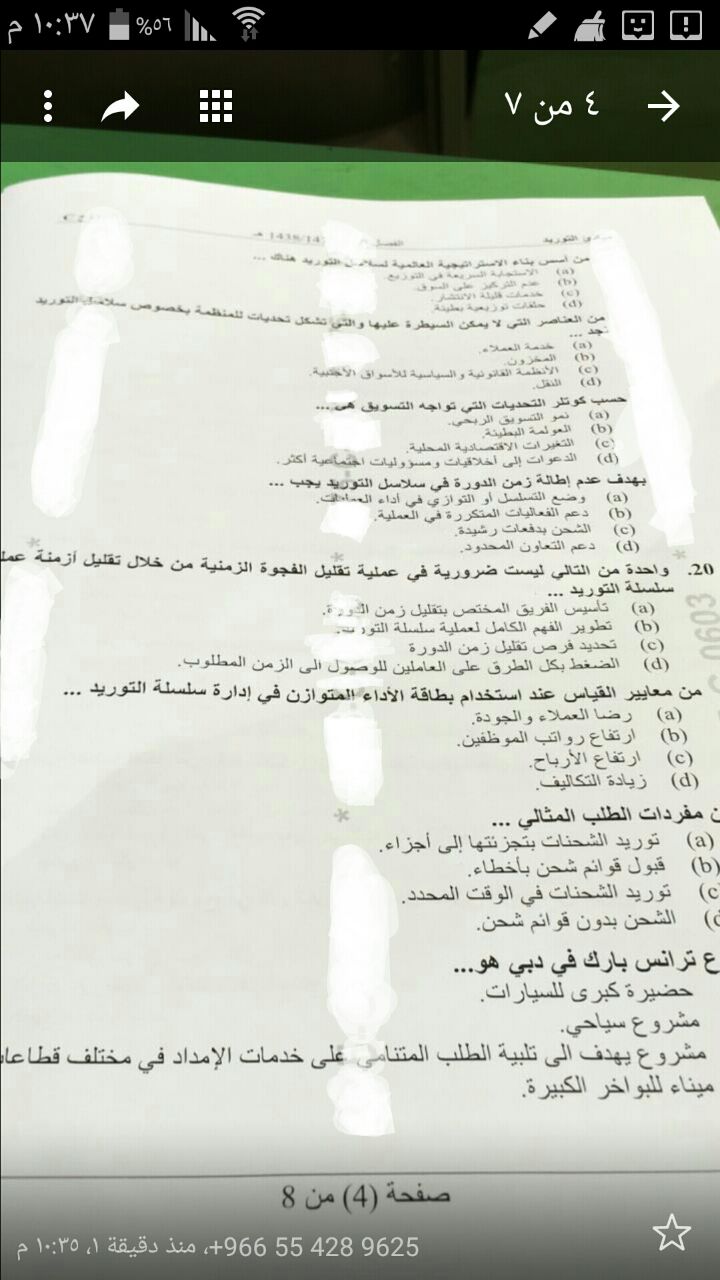 ١٠:٣٧ م
%٥٦
٤ من ٧
مبادئ التوريد
الفصل
1438/14 هـ
من أسس بناء الاستراتيجية العالمية لسلاسل التوريد هناك ...
(a) الاستجابة السريعة في التوزيع.
(b) عدم التركيز على السوق.
(c) خدمات قليلة الانتشار.
(d) حلقات توزيعية بطيئة.
من العناصر التي لا يمكن السيطرة عليها والتي تشكل تحديات للمنظمة بخصوص سلاسل التوريد
نجد ...
(a) خدمة العملاء.
(b) المخزون.
(c) الأنظمة القانونية والسياسية للأسواق الأجنبية.
(d) النقل.
حسب كوتلر التحديات التي تواجه التسويق هي ...
(a) نمو التسويق الربحي.
(b) العولمة البطيئة.
(c) التغيرات الاقتصادية المحلية.
(d) الدعوات إلى أخلاقيات ومسؤوليات اجتماعية أكثر.
بهدف عدم إطالة زمن الدورة في سلاسل التوريد يجب ...
(a) وضع التسلسل أو التوازي في أداء العمليات.
(b) دعم الفعاليات المتكررة في العملية.
(c) الشحن بدفعات رشيدة.
(d) دعم التعاون المحدود.
20. واحدة من التالي ليست ضرورية في عملية تقليل الفجوة الزمنية من خلال تقليل أزمنة
سلسلة التوريد ...
(a) تأسيس الفريق المختص بتقليل زمن الدورة.
(b) تطوير الفهم الكامل لعملية سلسلة التوريد.
(c) تحديد فرص تقليل زمن الدورة
(d) الضغط بكل الطرق على العاملين للوصول الى الزمن المطلوب.
من معايير القياس عند استخدام بطاقة الأداء المتوازن في إدارة سلسلة التوريد ...
(a) رضا العملاء والجودة.
(b) ارتفاع رواتب الموظفين.
(c) ارتفاع الأرباح.
(d) زيادة التكاليف.
مفردات الطلب المثالي ...
(a) توريد الشحنات بتجزئتها إلى أجزاء.
(b) قبول قوائم شحن بأخطاء.
(c توريد الشحنات في الوقت المحدد.
الشحن بدون قوائم شحن.
ع ترانس بارك في دبي هو...
حضيرة كبرى للسيارات.
مشروع سياحي.
مشروع يهدف الى تلبية الطلب المتنامي على خدمات الإمداد في مختلف
ميناء للبواخر الكبيرة.
صفحة (4) من 8
0603
+966 55 428 9625، منذ دقيقة ١، ١٠:٣٥ م